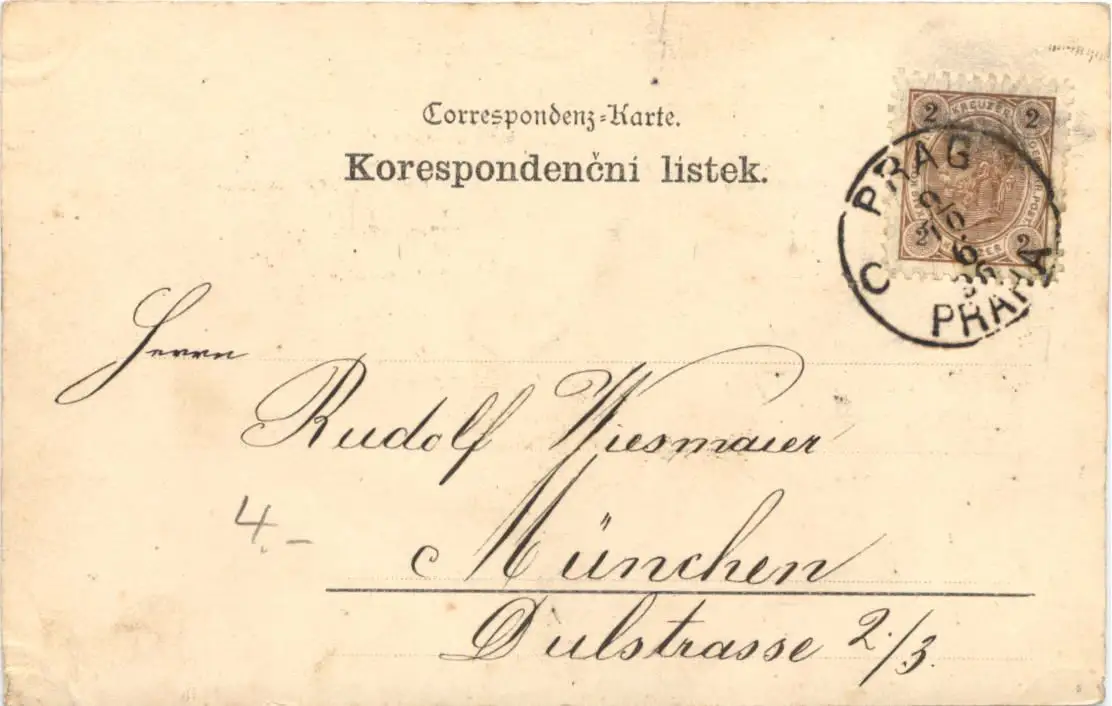 Correspondenz-Karte.
Korespondenční lístek.
2 KREUZER 2
2 KREUZER 2
PRAG
C
PRAHA
Herrn
Rudolf Wiesmaier
4.–
München
Dulstrasse 2/3.